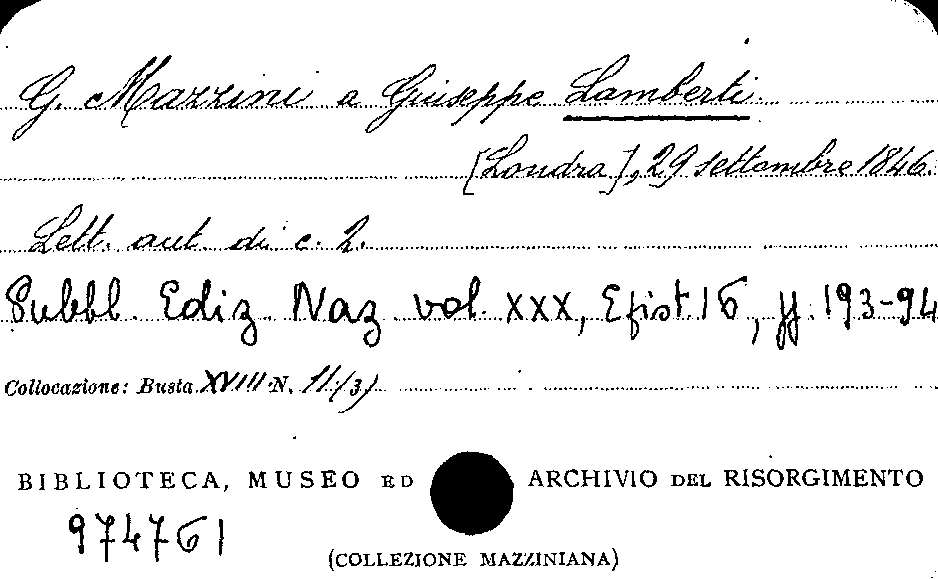 G. Mazzini a Giuseppe Lamberti
[Londra], 29 settembre 1846.
Lett. aut. di c. 2.
Pubbl. Ediz. Naz. vol. XXX, Epist. 16, pp. 193-94
Collocazione: Busta XVIII N. 11(3)
BIBLIOTECA, MUSEO ED ARCHIVIO DEL RISORGIMENTO
974761
(COLLEZIONE MAZZINIANA)